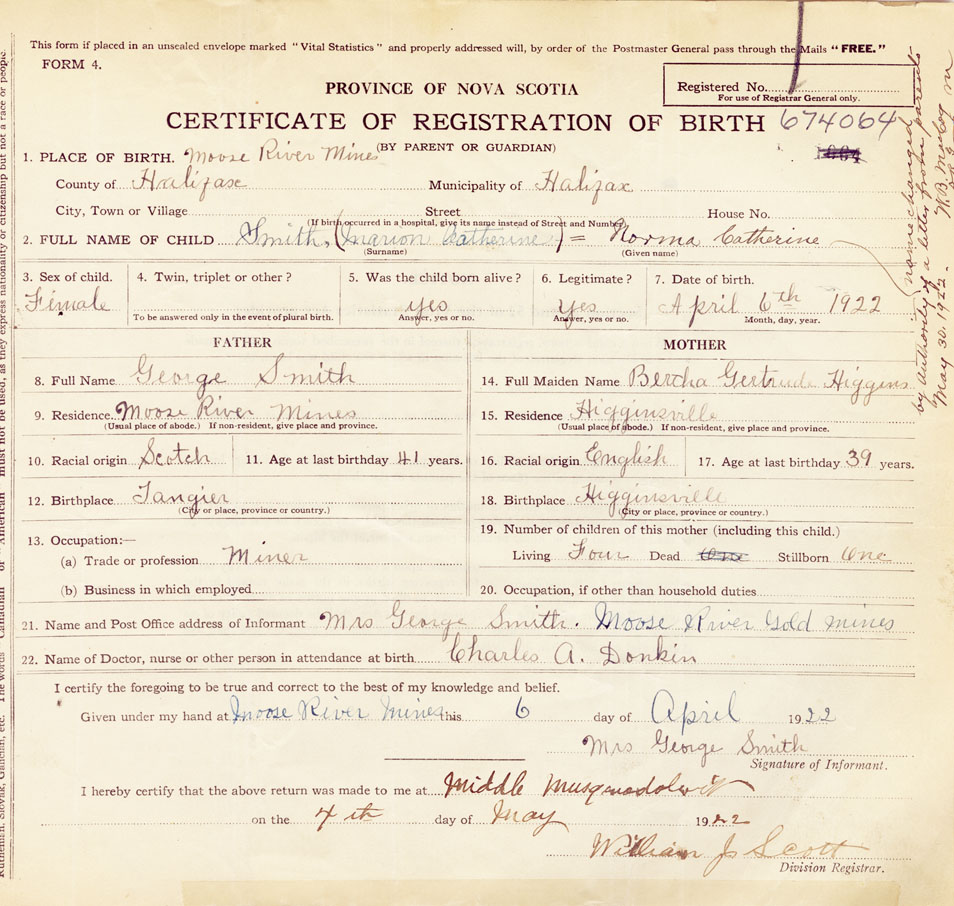 This form if placed in an unsealed envelope marked "Vital Statistics" and properly addressed will, by order of the Postmaster General pass through the Mails "FREE."
FORM 4.
PROVINCE OF NOVA SCOTIA
Registered No.
For use of Registrar General only.
CERTIFICATE OF REGISTRATION OF BIRTH 674064
(BY PARENT OR GUARDIAN)
1. PLACE OF BIRTH. Moose River Mines
County of Halifax Municipality of Halifax
City, Town or Village Street House No.
(If birth occurred in a hospital, give its name instead of Street and Number)
2. FULL NAME OF CHILD Smith, (Marion Catherine) = Norma Catherine
(Surname) (Given name)
3. Sex of child. 4. Twin, triplet or other? 5. Was the child born alive? 6. Legitimate? 7. Date of birth.
Female yes Yes April 6th 1922
To be answered only in the event of plural birth. Answer, yes or no. Answer, yes or no. Month, day, year.
FATHER
8. Full Name George Smith
9. Residence Moose River Mines
(Usual place of abode.) If non-resident, give place and province.
10. Racial origin Scotch 11. Age at last birthday 41 years.
12. Birthplace Tangier
(City or place, province or country.)
13. Occupation:—
(a) Trade or profession Miner
(b) Business in which employed
MOTHER
14. Full Maiden Name Bertha Gertrude Higgins
15. Residence Higginsville
(Usual place of abode.) If non-resident, give place and province.
16. Racial origin English 17. Age at last birthday 39 years.
18. Birthplace Higginsville
(City or place, province or country.)
19. Number of children of this mother (including this child.)
Living Four Dead One Stillborn One
20. Occupation, if other than household duties
21. Name and Post Office address of Informant Mrs George Smith. Moose River Gold Mines
22. Name of Doctor, nurse or other person in attendance at birth Charles A. Donkin
I certify the foregoing to be true and correct to the best of my knowledge and belief.
Given under my hand at Moose River Mines this 6 day of April 1922
Mrs George Smith
Signature of Informant.
I hereby certify that the above return was made to me at Middle Musquodoboit
on the 4th day of May 1922
William J Scott
Division Registrar.
name changed
by authority of a letter from parents
May 30. 1922 -
must not be used, as they express nationality or citizenship but not a race or people.
The words "Canadian" or "American"
Ruthenian, Slovak, Galician, etc.